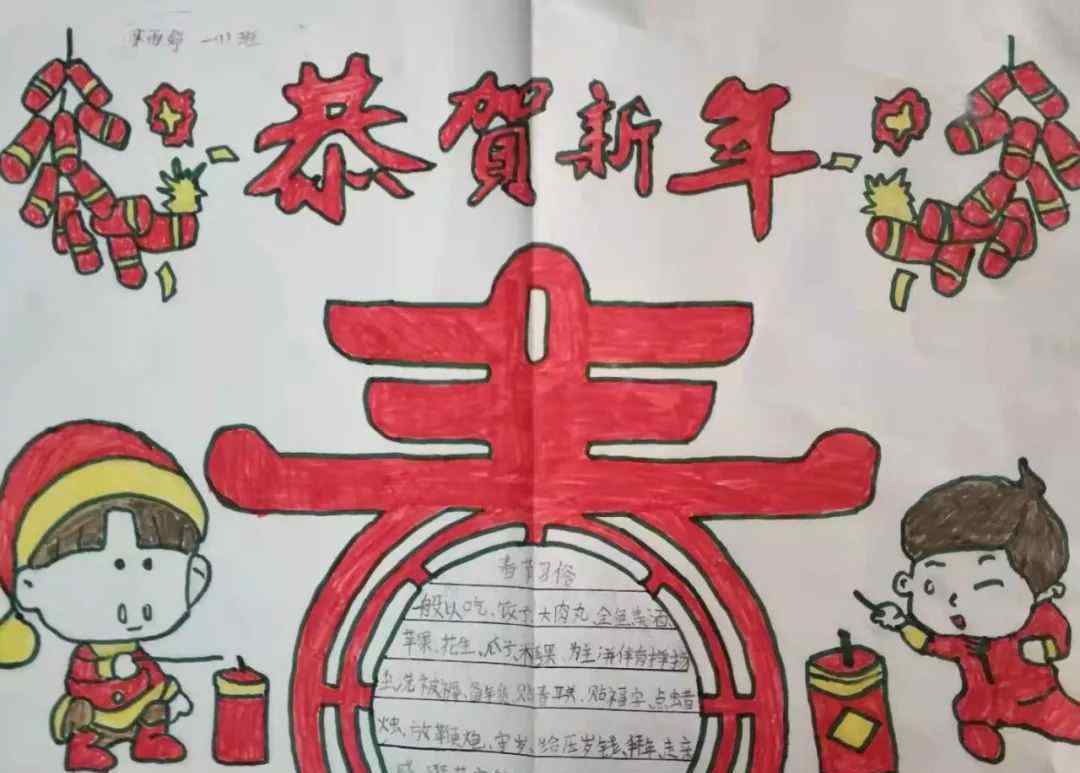 一(1)班
恭賀新年
春
春节习俗
一般以吃、饺子、大肉丸、全鱼、美酒、
苹果、花生、瓜子、糖果、为主并伴有掸扬
尘、洗被褥、备年货、贴春联、贴福字、点蜡
烛、放鞭炮、守岁、给压岁钱、拜年、走亲